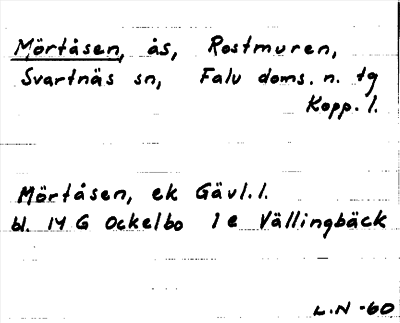 Mörtåsen, ås, Rostmuren,
Svartnäs sn, Falu doms. n. tg
Kopp. l.
Mörtåsen, ek Gävl. l.
bl. 14 G Ockelbo 1 e Vällingbäck
L.N -60